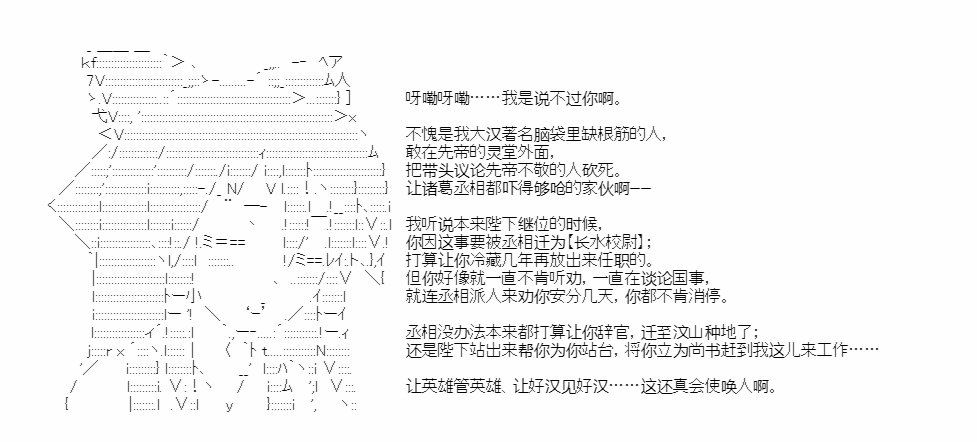 呀嘞呀嘞……我是说不过你啊。
不愧是我大汉著名脑袋里缺根筋的人，
敢在先帝的灵堂外面，
把带头议论先帝不敬的人砍死。
让诸葛丞相都吓得够呛的家伙啊——
我听说本来陛下继位的时候，
你因这事要被丞相迁为【长水校尉】；
打算让你冷藏几年再放出来任职的。
但你好像就一直不肯听劝，一直在谈论国事，
就连丞相派人来劝你安分几天，你都不肯消停。
丞相没办法本来都打算让你辞官，迁至汶山种地了；
还是陛下站出来帮你为你站台，将你立为尚书赶到我这儿来工作……
让英雄管英雄、让好汉见好汉……这还真会使唤人啊。